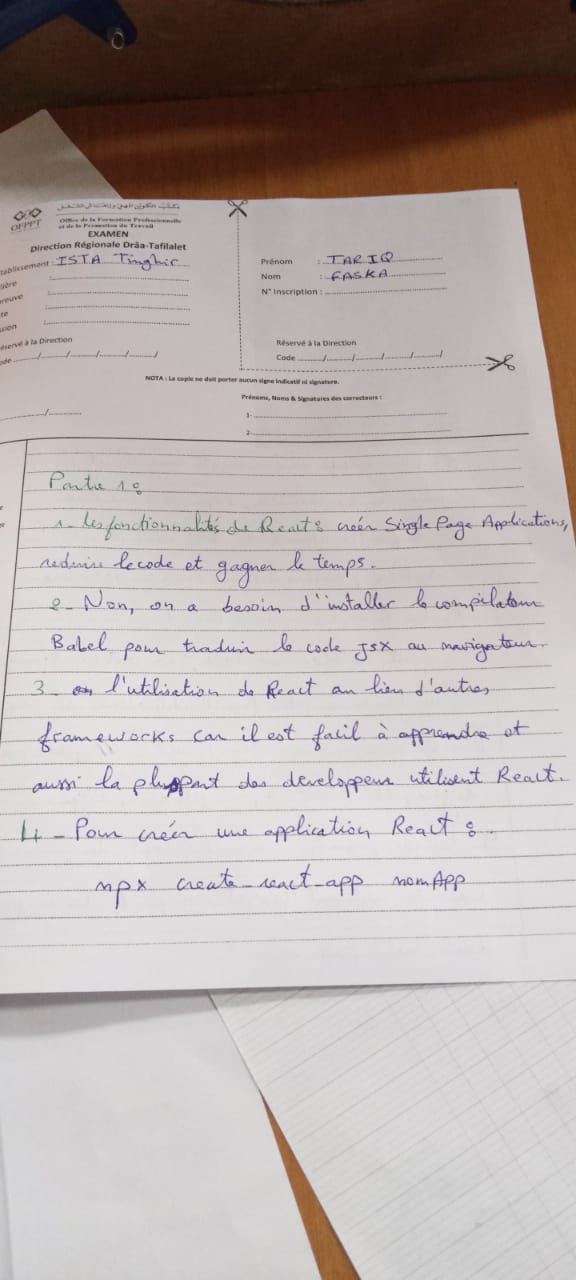 مكتب التكوين المهني وإنعاش الشغل
OFPPT
Office de la Formation Professionnelle
et de la Promotion du Travail
EXAMEN
Direction Régionale Drâa-Tafilalet
tablissement : ISTA Tinghir
lière :
reuve :
te :
ssion :
éservé à la Direction
ode ....../....../....../....../
Prénom : TARIQ
Nom : FASKA
N° Inscription :
Réservé à la Direction
Code ....../....../....../....../
NOTA : La copie ne doit porter aucun signe indicatif ni signature.
Prénoms, Noms & Signatures des correcteurs :
1-
2-
Partie 1 :
1- les fonctionnalités de React : créer Single Page Applications,
reduire le code et gagner le temps.
2- Non, on a besoin d'installer le compilateur
Babel pour traduire le code JSX au navigateur.
3- l'utilisation de React au lieu d'autres
frameworks car il est facil à apprendre et
aussi la pluppart des developpeur utilisent React.
4- Pour créer une application React :
npx create-react-app nomApp